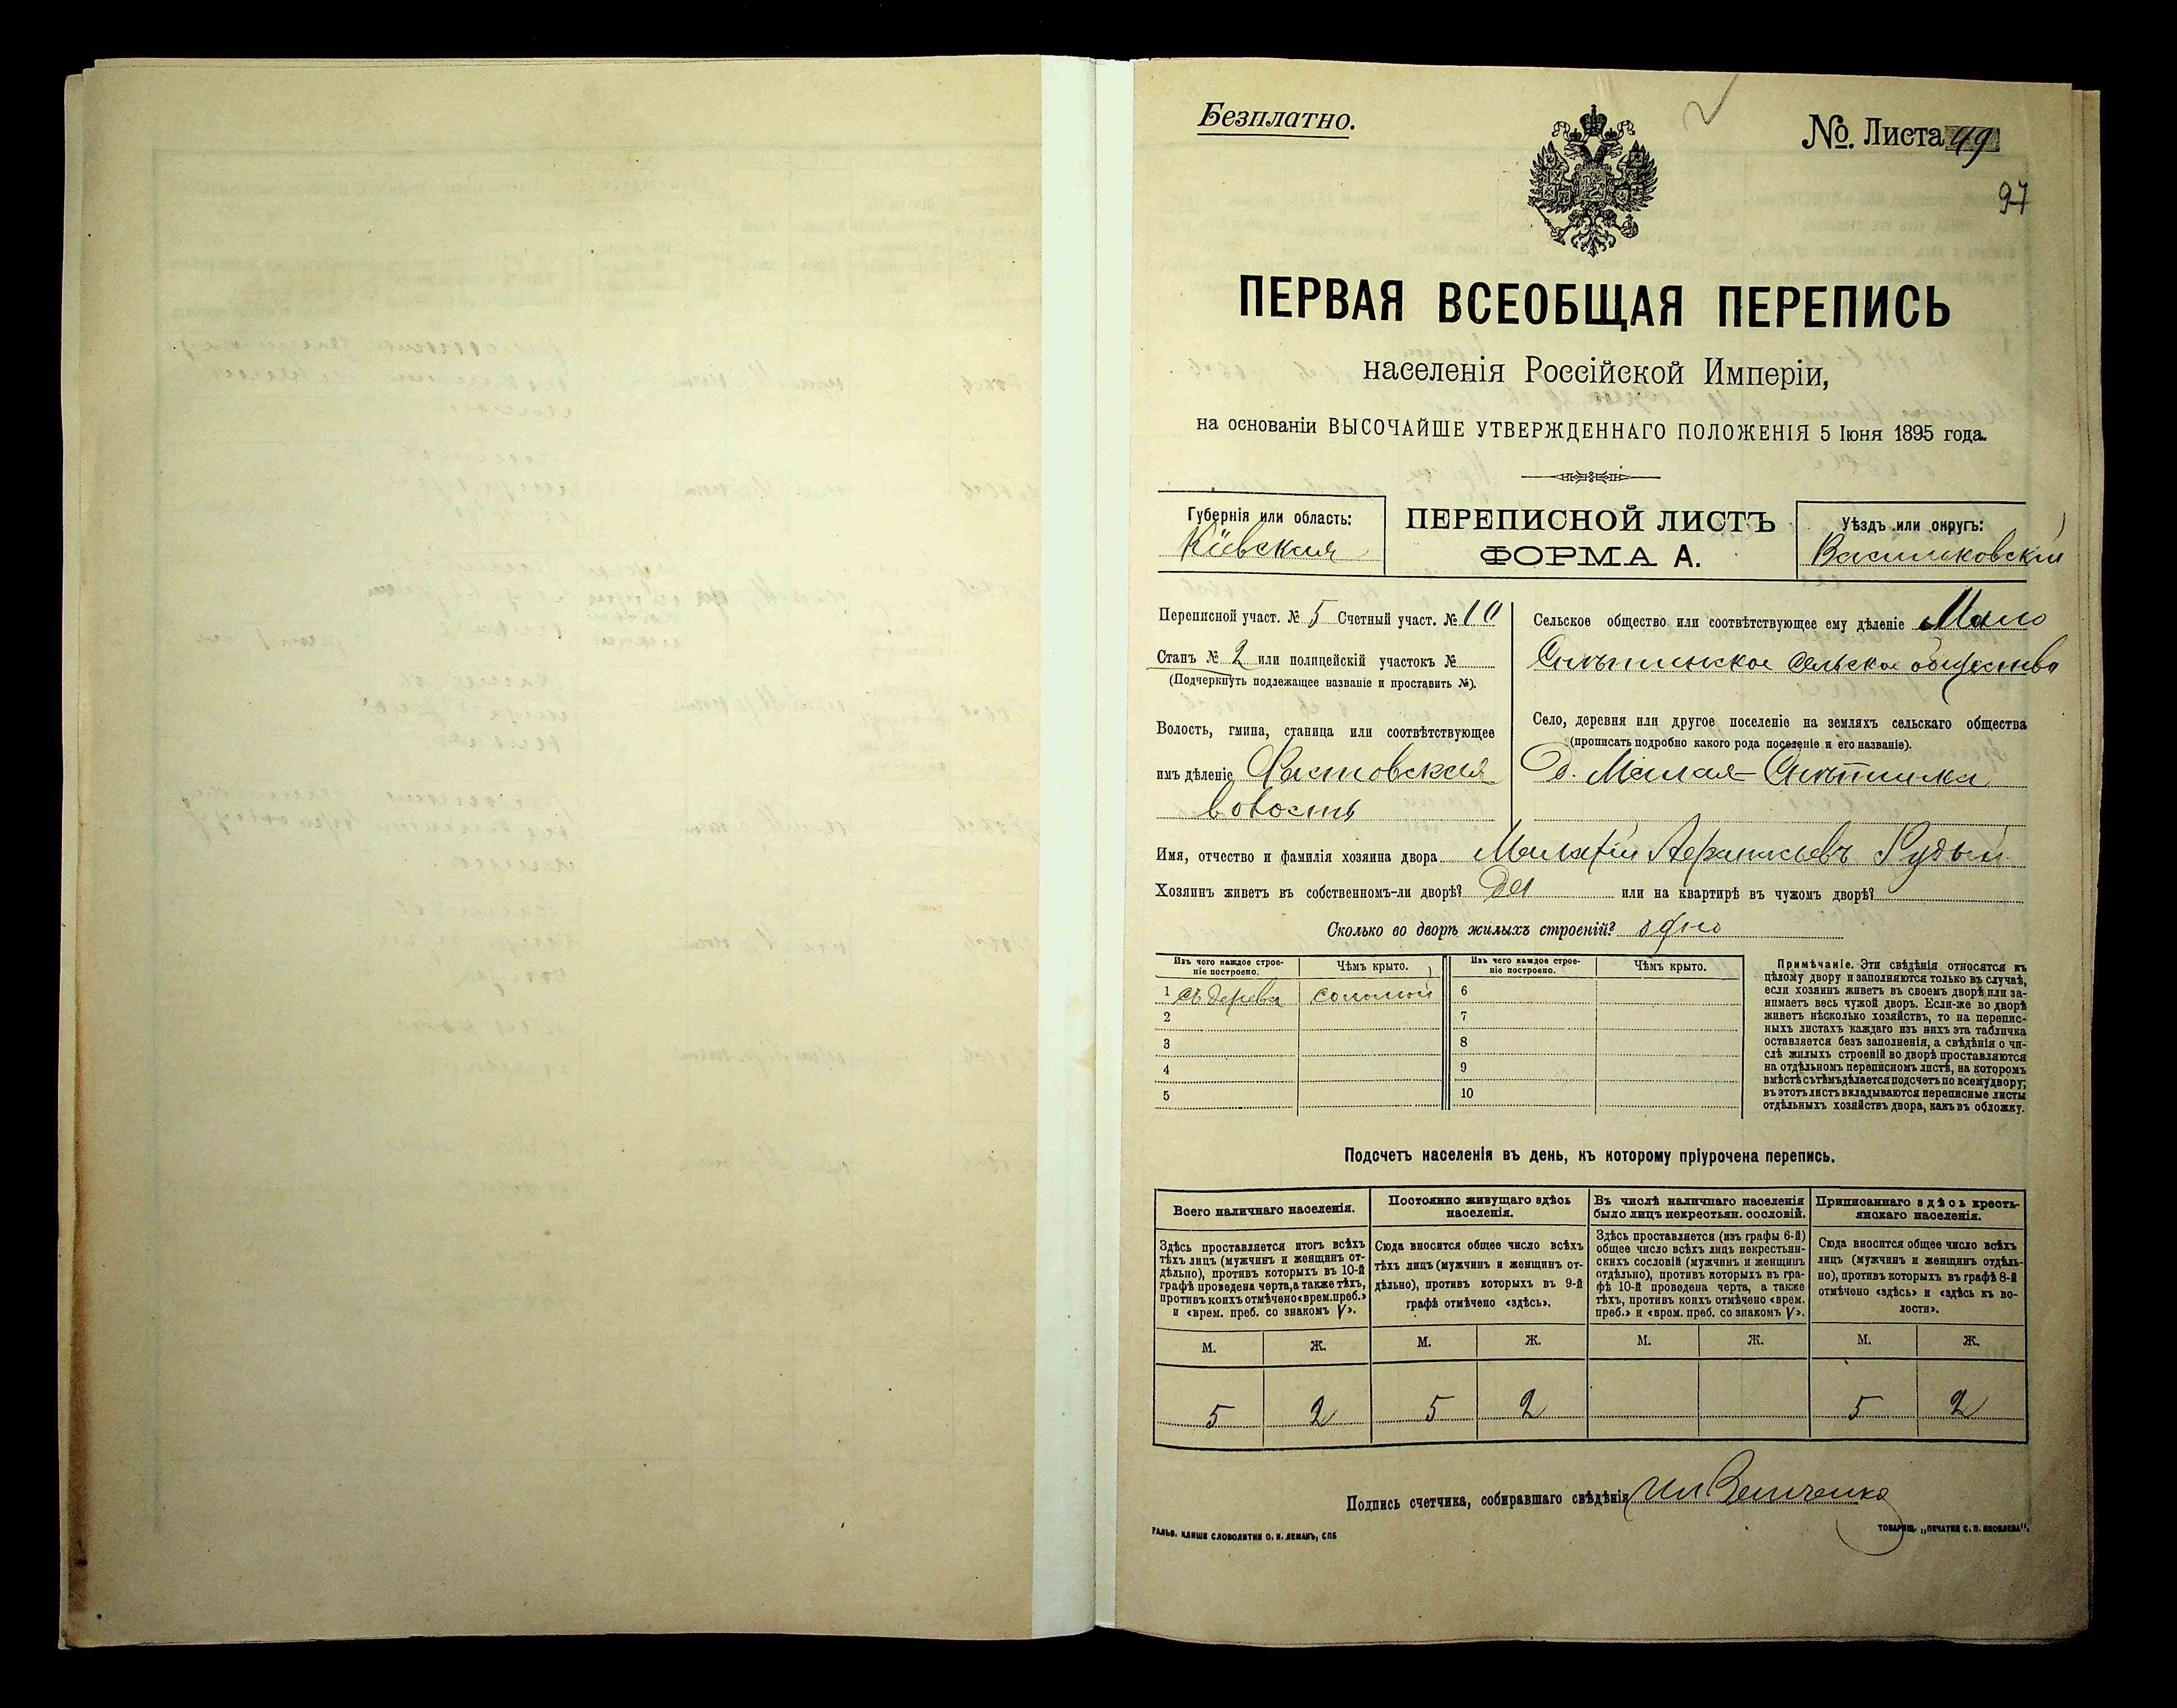 Безплатно.
№. Листа 49
97
ПЕРВАЯ ВСЕОБЩАЯ ПЕРЕПИСЬ
населенія Россійской Имперіи,
на основаніи ВЫСОЧАЙШЕ УТВЕРЖДЕННАГО ПОЛОЖЕНІЯ 5 Іюня 1895 года.
Губернія или область:
Кіевская
ПЕРЕПИСНОЙ ЛИСТЪ
ФОРМА А.
Уѣздъ или округъ:
Васильковскій
Переписной участ. № 5 Счетный участ. № 10
Станъ № 2 или полицейскій участокъ №
(Подчеркнуть подлежащее названіе и проставить №).
Волость, гмина, станица или соотвѣтствующее
имъ дѣленіе Фастовская
волость
Сельское общество или соотвѣтствующее ему дѣленіе Мало
Снѣтинское сельское общество
Село, деревня или другое поселеніе на земляхъ сельскаго общества
(прописать подробно какого рода поселеніе и его названіе).
Д. Малая-Снѣтинка
Имя, отчество и фамилія хозяина двора Малафій Афанасьевъ Рудый
Хозяинъ живетъ въ собственномъ-ли дворѣ? Да или на квартирѣ въ чужомъ дворѣ?
Сколько во дворѣ жилыхъ строеній? одно
Изъ чего каждое строеніе построено.
Чѣмъ крыто.
Изъ чего каждое строеніе построено.
Чѣмъ крыто.
1 съ дерева соломой
2
3
4
5
6
7
8
9
10
Примѣчаніе. Эти свѣдѣнія относятся къ
цѣлому двору и заполняются только въ случаѣ,
если хозяинъ живетъ въ своемъ дворѣ или за-
нимаетъ весь чужой дворъ. Если-же во дворѣ
живетъ нѣсколько хозяйствъ, то на перепис-
ныхъ листахъ каждаго изъ нихъ эта табличка
оставляется безъ заполненія, а свѣдѣнія о чи-
слѣ жилыхъ строеній во дворѣ проставляются
на отдѣльномъ переписномъ листѣ, на которомъ
вмѣстѣ съ тѣмъ дѣлается подсчетъ по всему двору;
въ этотъ листъ вкладываются переписные листы
отдѣльныхъ хозяйствъ двора, какъ въ обложку.
Подсчетъ населенія въ день, къ которому пріурочена перепись.
Всего наличнаго населенія.
Здѣсь проставляется итогъ всѣхъ
тѣхъ лицъ (мужчинъ и женщинъ от-
дѣльно), противъ которыхъ въ 10-й
графѣ проведена черта, а также тѣхъ,
противъ коихъ отмѣчено «врем. преб.»
и «врем. преб. со знакомъ V».
Постоянно живущаго здѣсь
населенія.
Сюда вносится общее число всѣхъ
тѣхъ лицъ (мужчинъ и женщинъ от-
дѣльно), противъ которыхъ въ 9-й
графѣ отмѣчено «здѣсь».
Въ числѣ наличнаго населенія
было лицъ некрестьян. сословій.
Здѣсь проставляется (изъ графы 6-й)
общее число всѣхъ лицъ некрестьян-
скихъ сословій (мужчинъ и женщинъ
отдѣльно), противъ которыхъ въ гра-
фѣ 10-й проведена черта, а также
тѣхъ, противъ коихъ отмѣчено «врем.
преб.» и «врем. преб. со знакомъ V».
Приписаннаго здѣсь кресть-
янскаго населенія.
Сюда вносится общее число всѣхъ
лицъ (мужчинъ и женщинъ отдѣль-
но), противъ которыхъ въ графѣ 8-й
отмѣчено «здѣсь» и «здѣсь къ во-
лости».
М. Ж. М. Ж. М. Ж. М. Ж.
5 2 5 2 5 2
Подпись счетчика, собиравшаго свѣдѣнія
ГАЛЬВ. КЛИШЕ СЛОВОЛИТНИ О. И. ЛЕМАНЪ, СПБ
ТОВАРИЩ. „ПЕЧАТНИ С. П. ЯКОВЛЕВА".